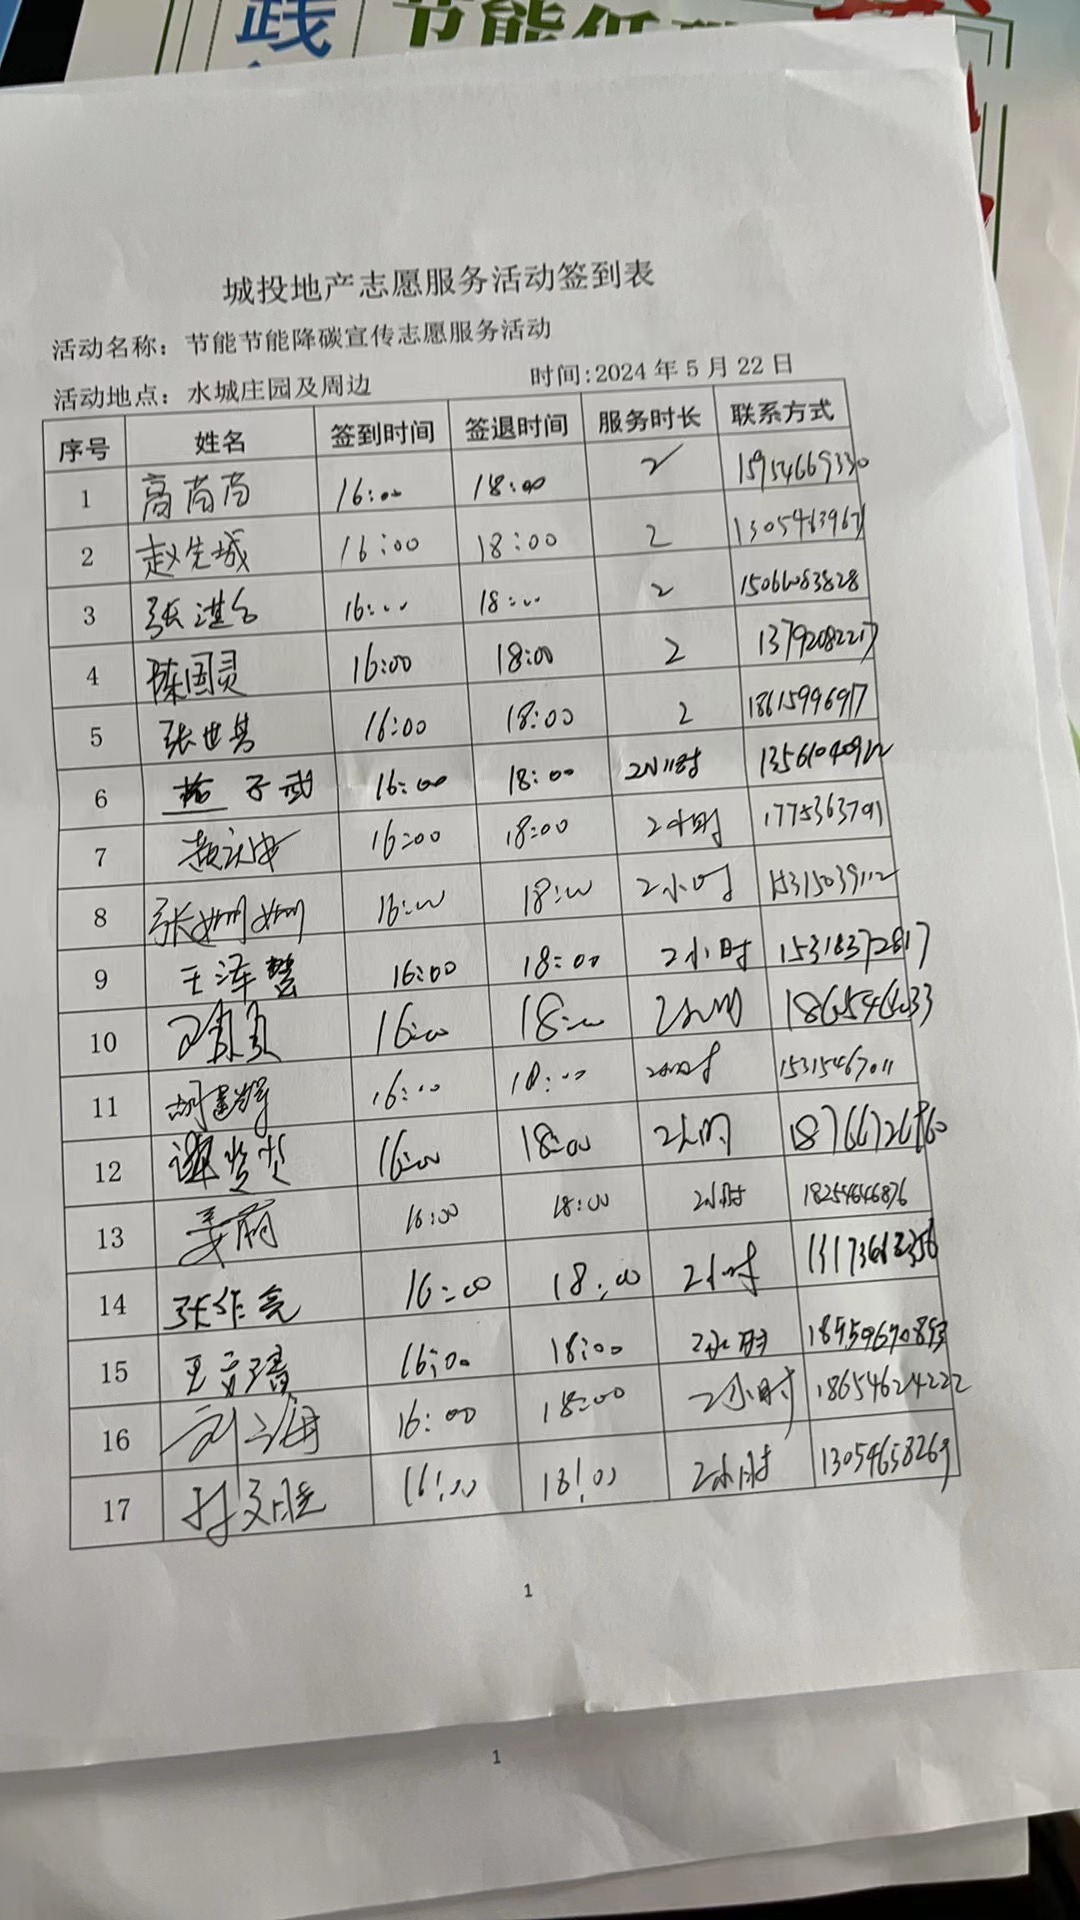 践 节能低碳
城投地产志愿服务活动签到表
活动名称：节能节能降碳宣传志愿服务活动
活动地点：水城庄园及周边 时间:2024年5月22日
序号 姓名 签到时间 签退时间 服务时长 联系方式
1 高苒苒 16:00 18:00 2 15954669330
2 赵先城 16:00 18:00 2
3 张湛 16:00 18:00 2 15066083828
4 陈国灵 16:00 18:00 2 13792082217
5 张世 16:00 18:00 2 18615996917
6 子武 16:00 18:00 2小时 13561040922
7 16:00 18:00 2小时 17753637091
8 张姗姗 16:00 18:00 2小时 15315039112
9 王泽 16:00 18:00 2小时 15318372817
10 16:00 18:00 2小时
11 胡 16:00 18:00 2小时 15315467011
12 16:00 18:00 2小时 18766726860
13 姜丽 16:00 18:00 2小时 18254646876
14 张作亮 16:00 18:00 2小时
15 王 16:00 18:00 2小时
16 刘海 16:00 18:00 2小时 18654624222
17 16:00 18:00 2小时 13054658269
1
1